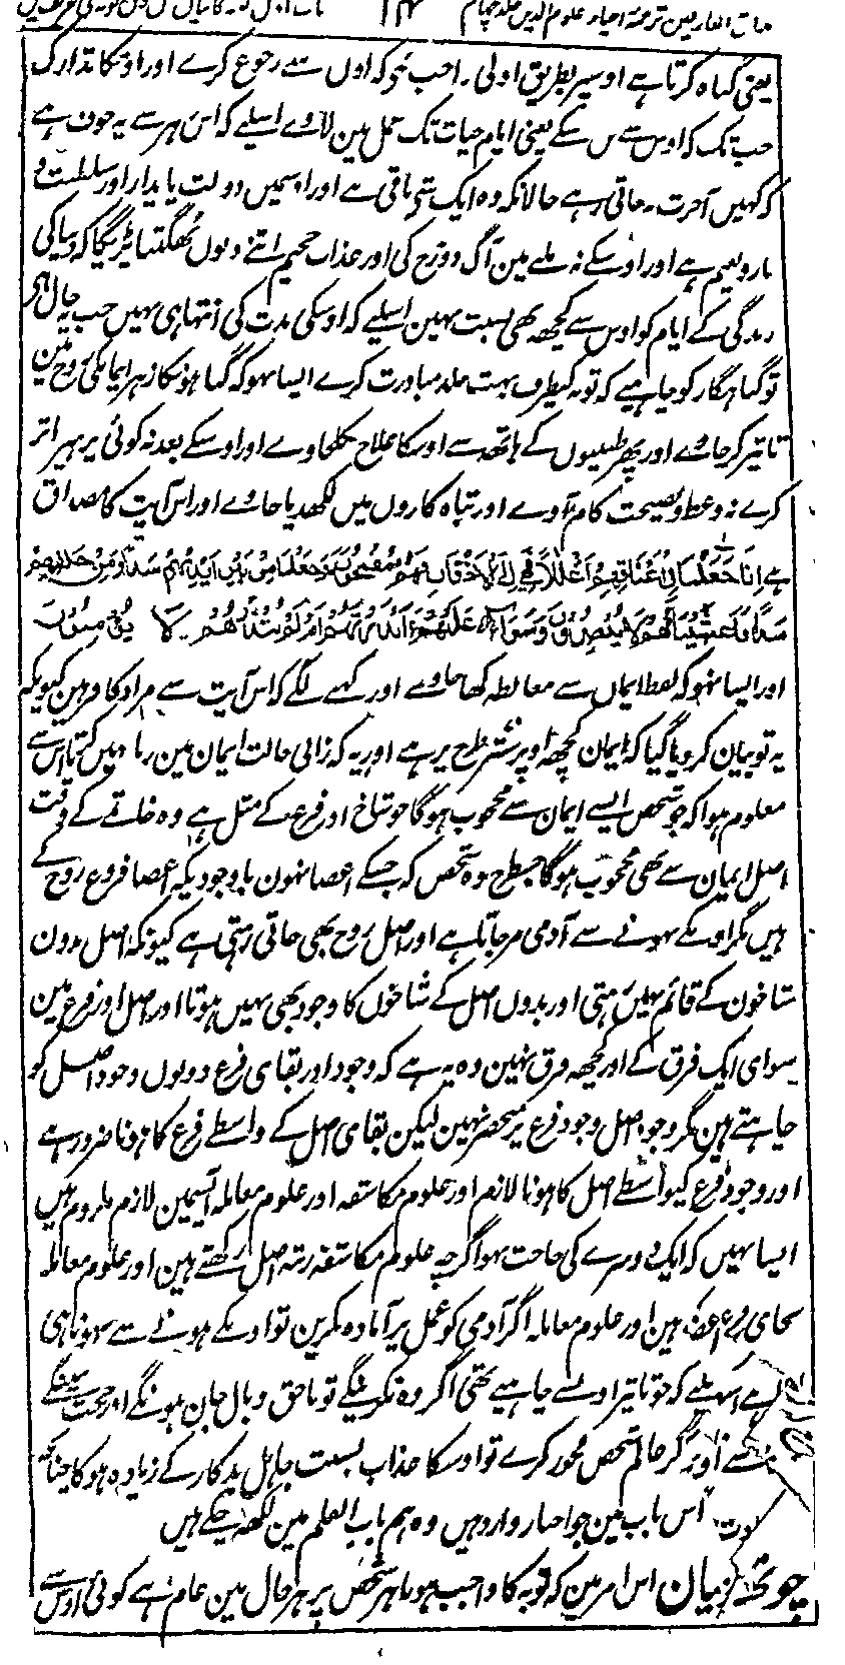 مذاق العارفین ترجمہ احیاء علوم الدین جلد چہارم
یعنی گناہ کرتا ہے اوسپر بطریق اولی واجب ہی کہ اوس سے رجوع کرے اور اوسکا تدارک
جب تک کہ اوس سے ہو سکے یعنی ایام حیات تک عمل مین لاوے اسلیے کہ اس زہر سے یہ خوف ہے
کہ کہیں آخرت نہ جاتی رہے حالانکہ وہ ایک شی باقی ہے اور اوسمیں دولت پایدار اور سلطنت و
ناز و نعیم ہے اور اوسکے نہ ملنے مین آگ دوزخ کی اور عذاب جحیم اتنے دنوں بھگتنا پڑیگا کہ دنیا کی
زندگی کے ایام کو اوس سے کچھ بھی نسبت نہین اسلیے کہ اوسکی مدت کی انتہا ہی نہیں جب یہ حال ہی
تو گناہگار کو چاہیے کہ توبہ کیطرف بہت جلد مبادرت کرے ایسا نہو کہ گناہونکا زہر ایمان کی روح مین
تاثیر کر جاوے اور پھر طبیبوں کے ہاتھ سے اوسکا علاج نکلجاوے اور اوسکے بعد نہ کوئی پرہیز اثر
کرے نہ وعظ و نصیحت کام آوے اور تباہ کاروں میں لکھدیا جاوے اور اس آیت کا مصداق
ہے إِنَّا جَعَلْنَا فِي أَعْنَاقِهِمْ أَغْلَالًا فَهِيَ إِلَى الْأَذْقَانِ فَهُمْ مُقْمَحُونَ وَجَعَلْنَا مِنْ بَيْنِ أَيْدِيهِمْ سَدًّا وَمِنْ خَلْفِهِمْ
سَدًّا فَأَغْشَيْنَاهُمْ فَهُمْ لَا يُبْصِرُونَ وَسَوَاءٌ عَلَيْهِمْ أَأَنْذَرْتَهُمْ أَمْ لَمْ تُنْذِرْهُمْ لَا يُؤْمِنُونَ
اور ایسا نہو کہ لفظ ایمان سے مغالطہ کھا جاوے اور کہنے لگے کہ اس آیت سے مراد کافر ہین کیونکہ
یہ تو بیان کر دیا گیا کہ ایمان کچھ اوپر ستر طرح پر ہے اور یہ کہ زانی حالت ایمان مین زنا نہیں کرتا اس سے
معلوم ہوا کہ جو شخص ایسے ایمان سے محجوب ہوگا جو شاخ اور فرع کے مثل ہے وہ خاتمے کے وقت
اصل ایمان سے بھی محجوب ہوگا جسطرح وہ شخص کہ جسکے اعضا نہون باوجودیکہ اعضا فروع روح کے
ہیں مگر اونکے نہونے سے آدمی مرجاتا ہے اور اصل روح بھی جاتی رہتی ہے کیونکہ اصل بدون
شاخون کے قائم نہیں رہتی اور بدوں اصل کے شاخوں کا وجود بھی نہیں ہوتا اور اصل اور فرع مین
سوای ایک فرق کے اور کچھ فرق نہین وہ یہ ہے کہ وجود اور بقای فرع دونوں وجود اصل کو
چاہتے ہین مگر وجود اصل وجود فرع پر منحصر نہین لیکن بقای اصل کے واسطے فرع کا ہونا ضرور ہے
اور وجود فرع کیواسطے اصل کا ہونا لازم اور علوم مکاشفہ اور علوم معاملہ آپسمین لازم ملزوم ہیں
ایسا نہیں کہ ایک کو دوسرے کی حاجت نہو اگرچہ علوم مکاشفہ رتبہ اصل رکھتے ہین اور علوم معاملہ
بجای فروع ہین اور علوم معاملہ اگر آدمی کو عمل پر آمادہ نکرین تو اونکے ہونے سے نہونا ہی
اسلیے کہ جو تاثیر اونسے چاہیے تھی اگر وہ نکرینگے تو ناحق وبال جان ہونگے اور حجت
اور اگر عالم شخص فجور کرے تو اوسکا عذاب بنسبت جاہل بدکار کے زیادہ ہوگا چنانچہ
اس باب مین جو اخبار وارد ہیں وہ ہم باب العلم مین لکھ چکے ہیں
چوتھا بیان اس امر مین کہ توبہ کا واجب ہونا ہر شخص پر ہر حال مین عام ہے کوئی اوس سے